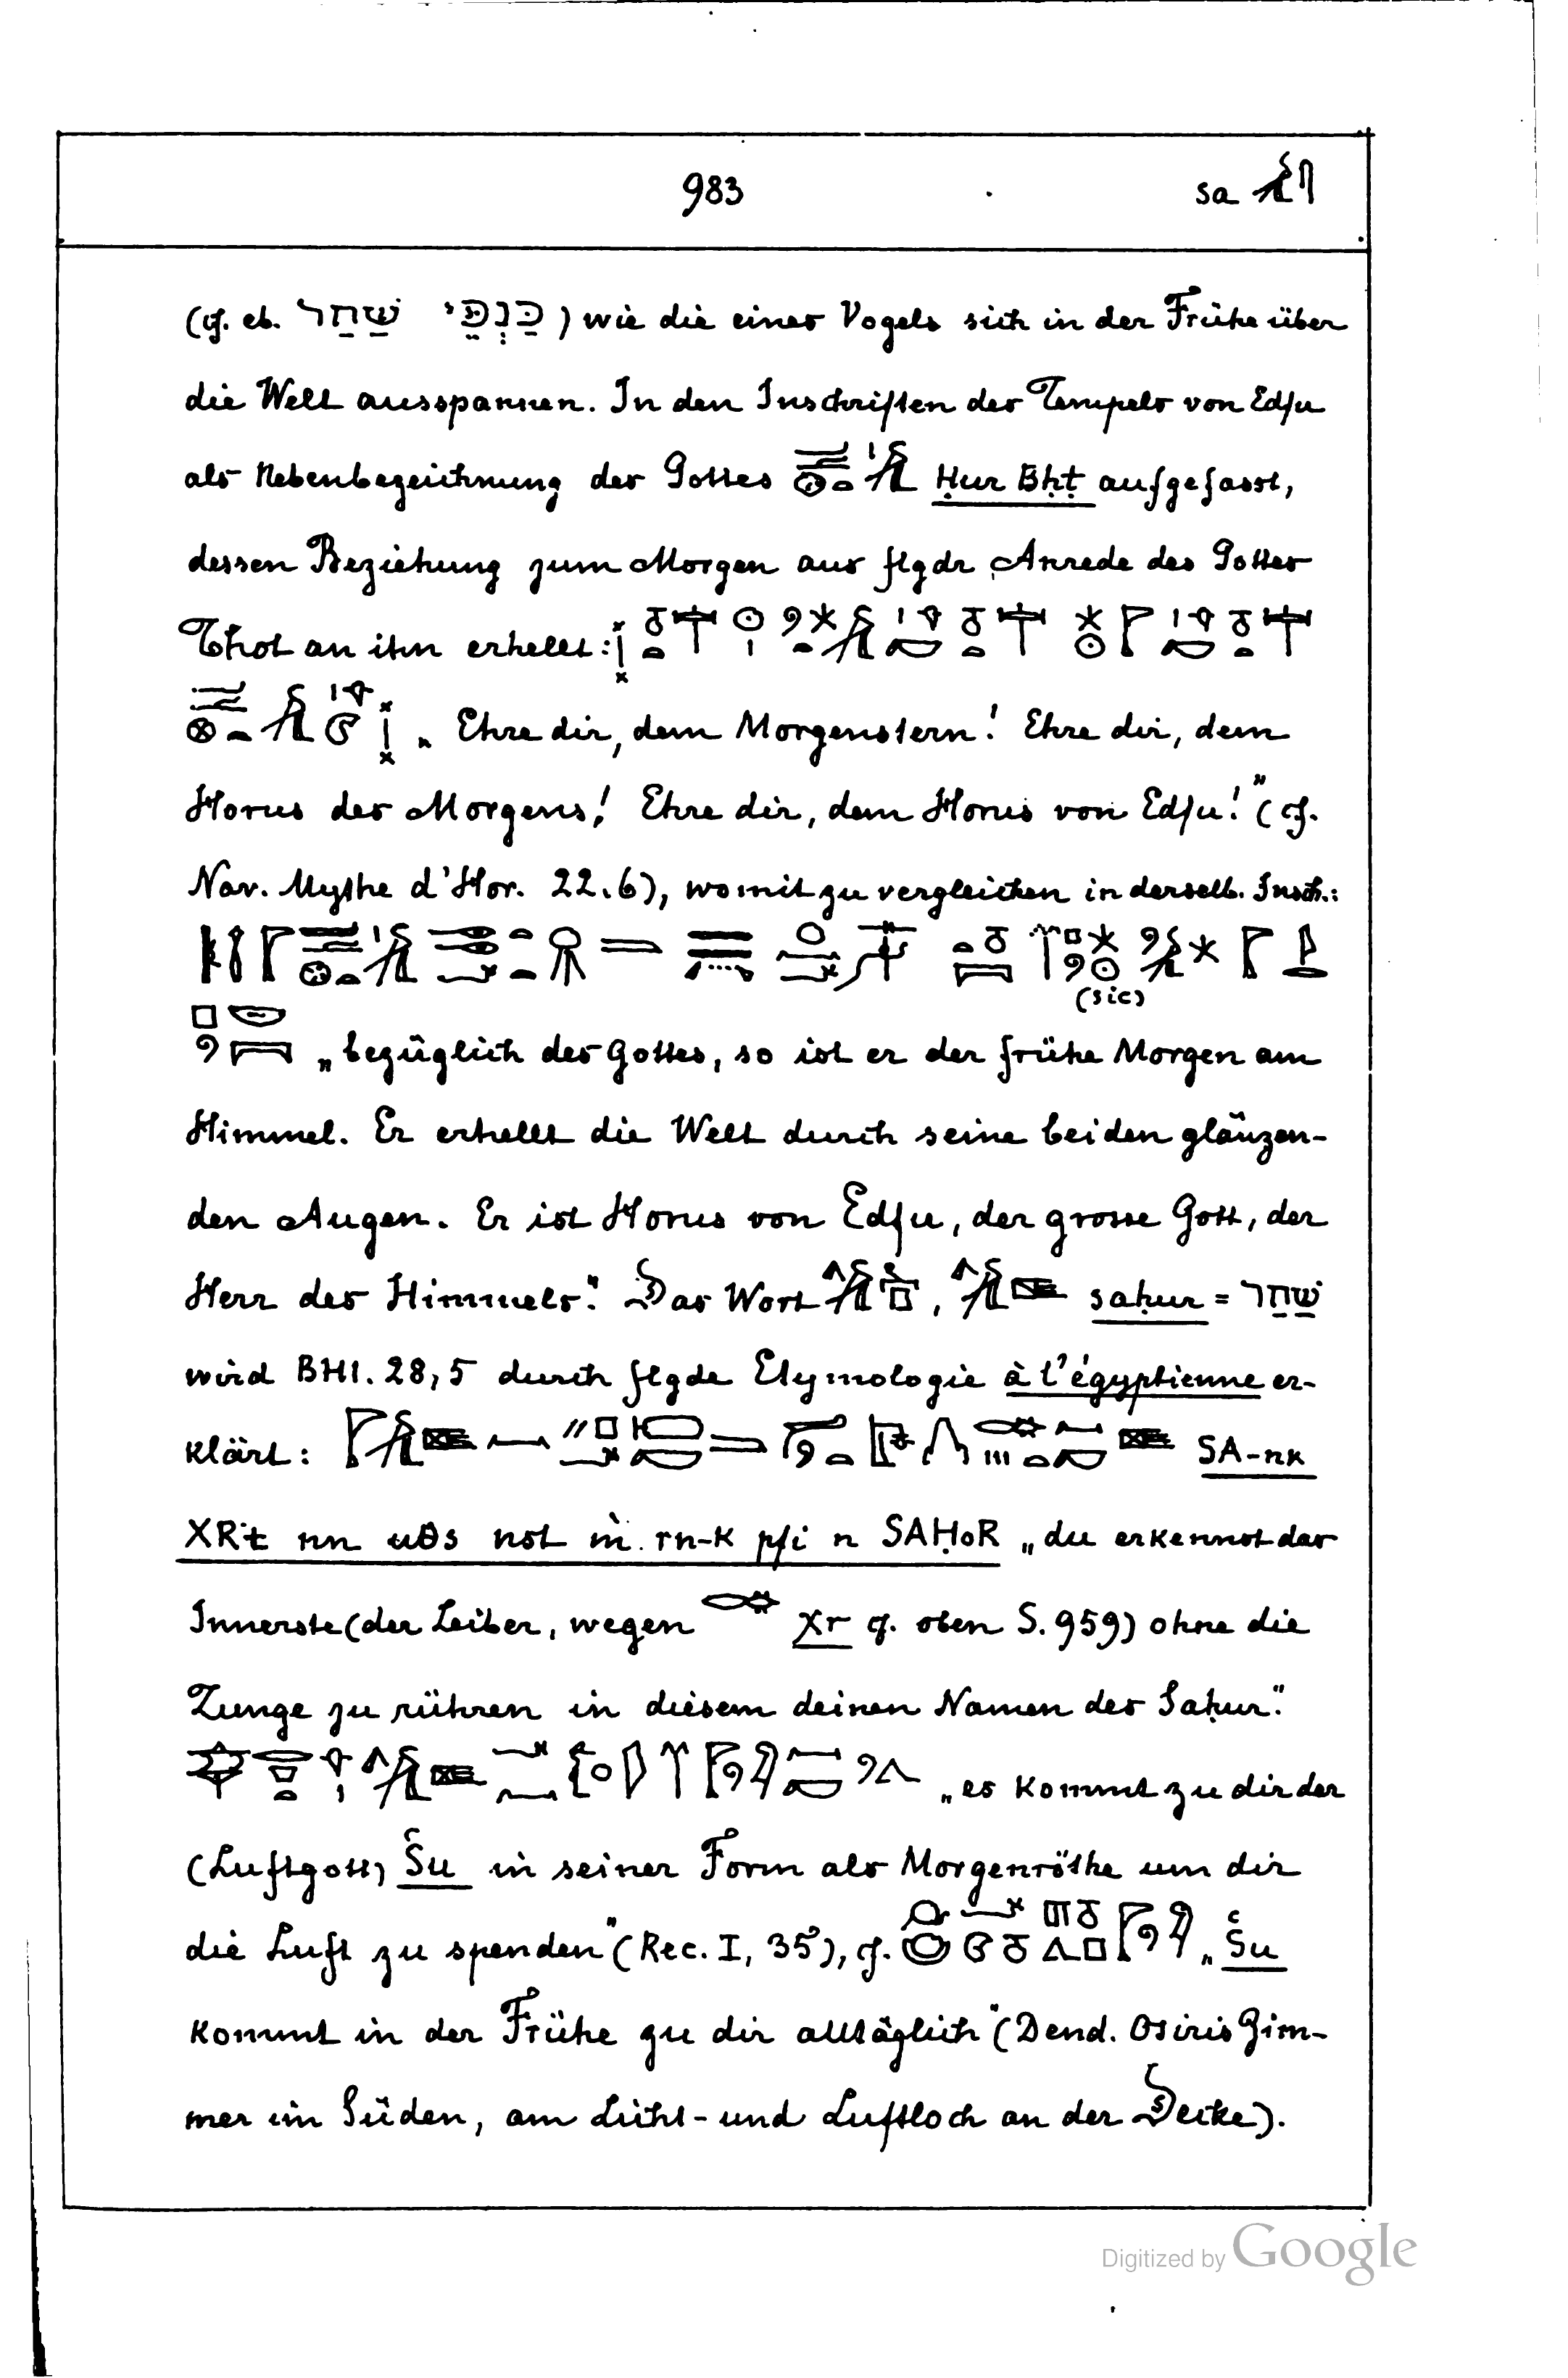 983 sa
(cf. eb. כַּנְפֵי שַׁחַר) wie die eines Vogels sich in der Frühe über
die Welt ausspannen. In den Inschriften des Tempels von Edfu
als Nebenbezeichnung des Gottes Ḥur Bḥṭ aufgefasst,
dessen Beziehung zum Morgen aus flgdr Anrede des Gottes
Thot an ihn erhellt:
„Ehre dir, dem Morgenstern! Ehre dir, dem
Horus des Morgens! Ehre dir, dem Horus von Edfu!" (cf.
Nav. Mythe d'Hor. 22.6), womit zu vergleichen in derselb. Insch.:
(sic)
„bezüglich des Gottes, so ist er der frühe Morgen am
Himmel. Er erhellt die Welt durch seine beiden glänzen-
den Augen. Er ist Horus von Edfu, der grosse Gott, der
Herr des Himmels." Das Wort , saḥur = שַׁחַר
wird BHI. 28,5 durch flgde Etymologie à l'égyptienne er-
klärt: SA-nk
XRt nn uθs nst m̀. rn-k pfi n SAḤoR „du erkennst das
Innerste (der Leiber, wegen Xr cf. oben S. 959) ohne die
Zunge zu rühren in diesem deinen Namen des Saḥur."
„es kommt zu dir der
(Luftgott) Šu in seiner Form als Morgenröthe um dir
die Luft zu spenden" (Rec. I, 35), cf. „Šu
kommt in der Frühe zu dir alltäglich" (Dend. Osiris Zim-
mer im Süden, am Licht- und Luftloch an der Decke).
Digitized by Google